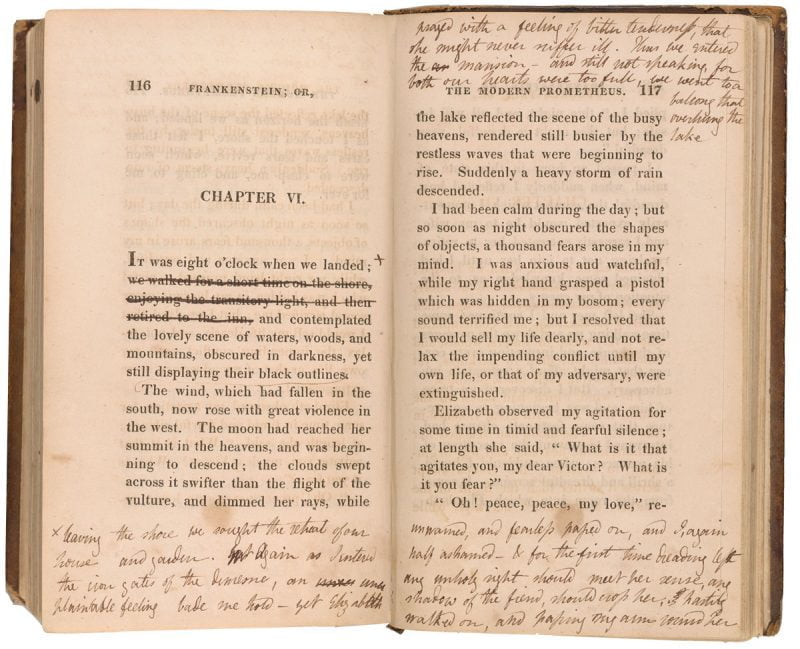 116 FRANKENSTEIN; OR,
CHAPTER VI.
IT was eight o'clock when we landed; x
we walked for a short time on the shore,
enjoying the transitory light, and then
retired to the inn, and contemplated
the lovely scene of waters, woods, and
mountains, obscured in darkness, yet
still displaying their black outlines.
The wind, which had fallen in the
south, now rose with great violence in
the west. The moon had reached her
summit in the heavens, and was begin-
ning to descend; the clouds swept
across it swifter than the flight of the
vulture, and dimmed her rays, while
x leaving the shore we sought the retreat of our
house and garden. Again as I entered
the iron gates of the demesne, an unex
plainable feeling bade me hold — yet Elizabeth
prayed with a feeling of bitter tenderness, that
she might never suffer ill. Thus we entered
the mansion — and still not speaking, for
both our hearts were too full, we went to a
balcony that
overhung the
lake
THE MODERN PROMETHEUS. 117
the lake reflected the scene of the busy
heavens, rendered still busier by the
restless waves that were beginning to
rise. Suddenly a heavy storm of rain
descended.
I had been calm during the day; but
so soon as night obscured the shapes
of objects, a thousand fears arose in my
mind. I was anxious and watchful,
while my right hand grasped a pistol
which was hidden in my bosom; every
sound terrified me; but I resolved that
I would sell my life dearly, and not re-
lax the impending conflict until my
own life, or that of my adversary, were
extinguished.
Elizabeth observed my agitation for
some time in timid and fearful silence;
at length she said, " What is it that
agitates you, my dear Victor? What is
it you fear?"
" Oh! peace, peace, my love," re-
unwarned, and fearless passed on, and I, again
half ashamed — & for the first time dreading lest
any unholy sight should meet her sense, any
shadow of the fiend, should cross her; I hastily
walked on, and passing my arm round her